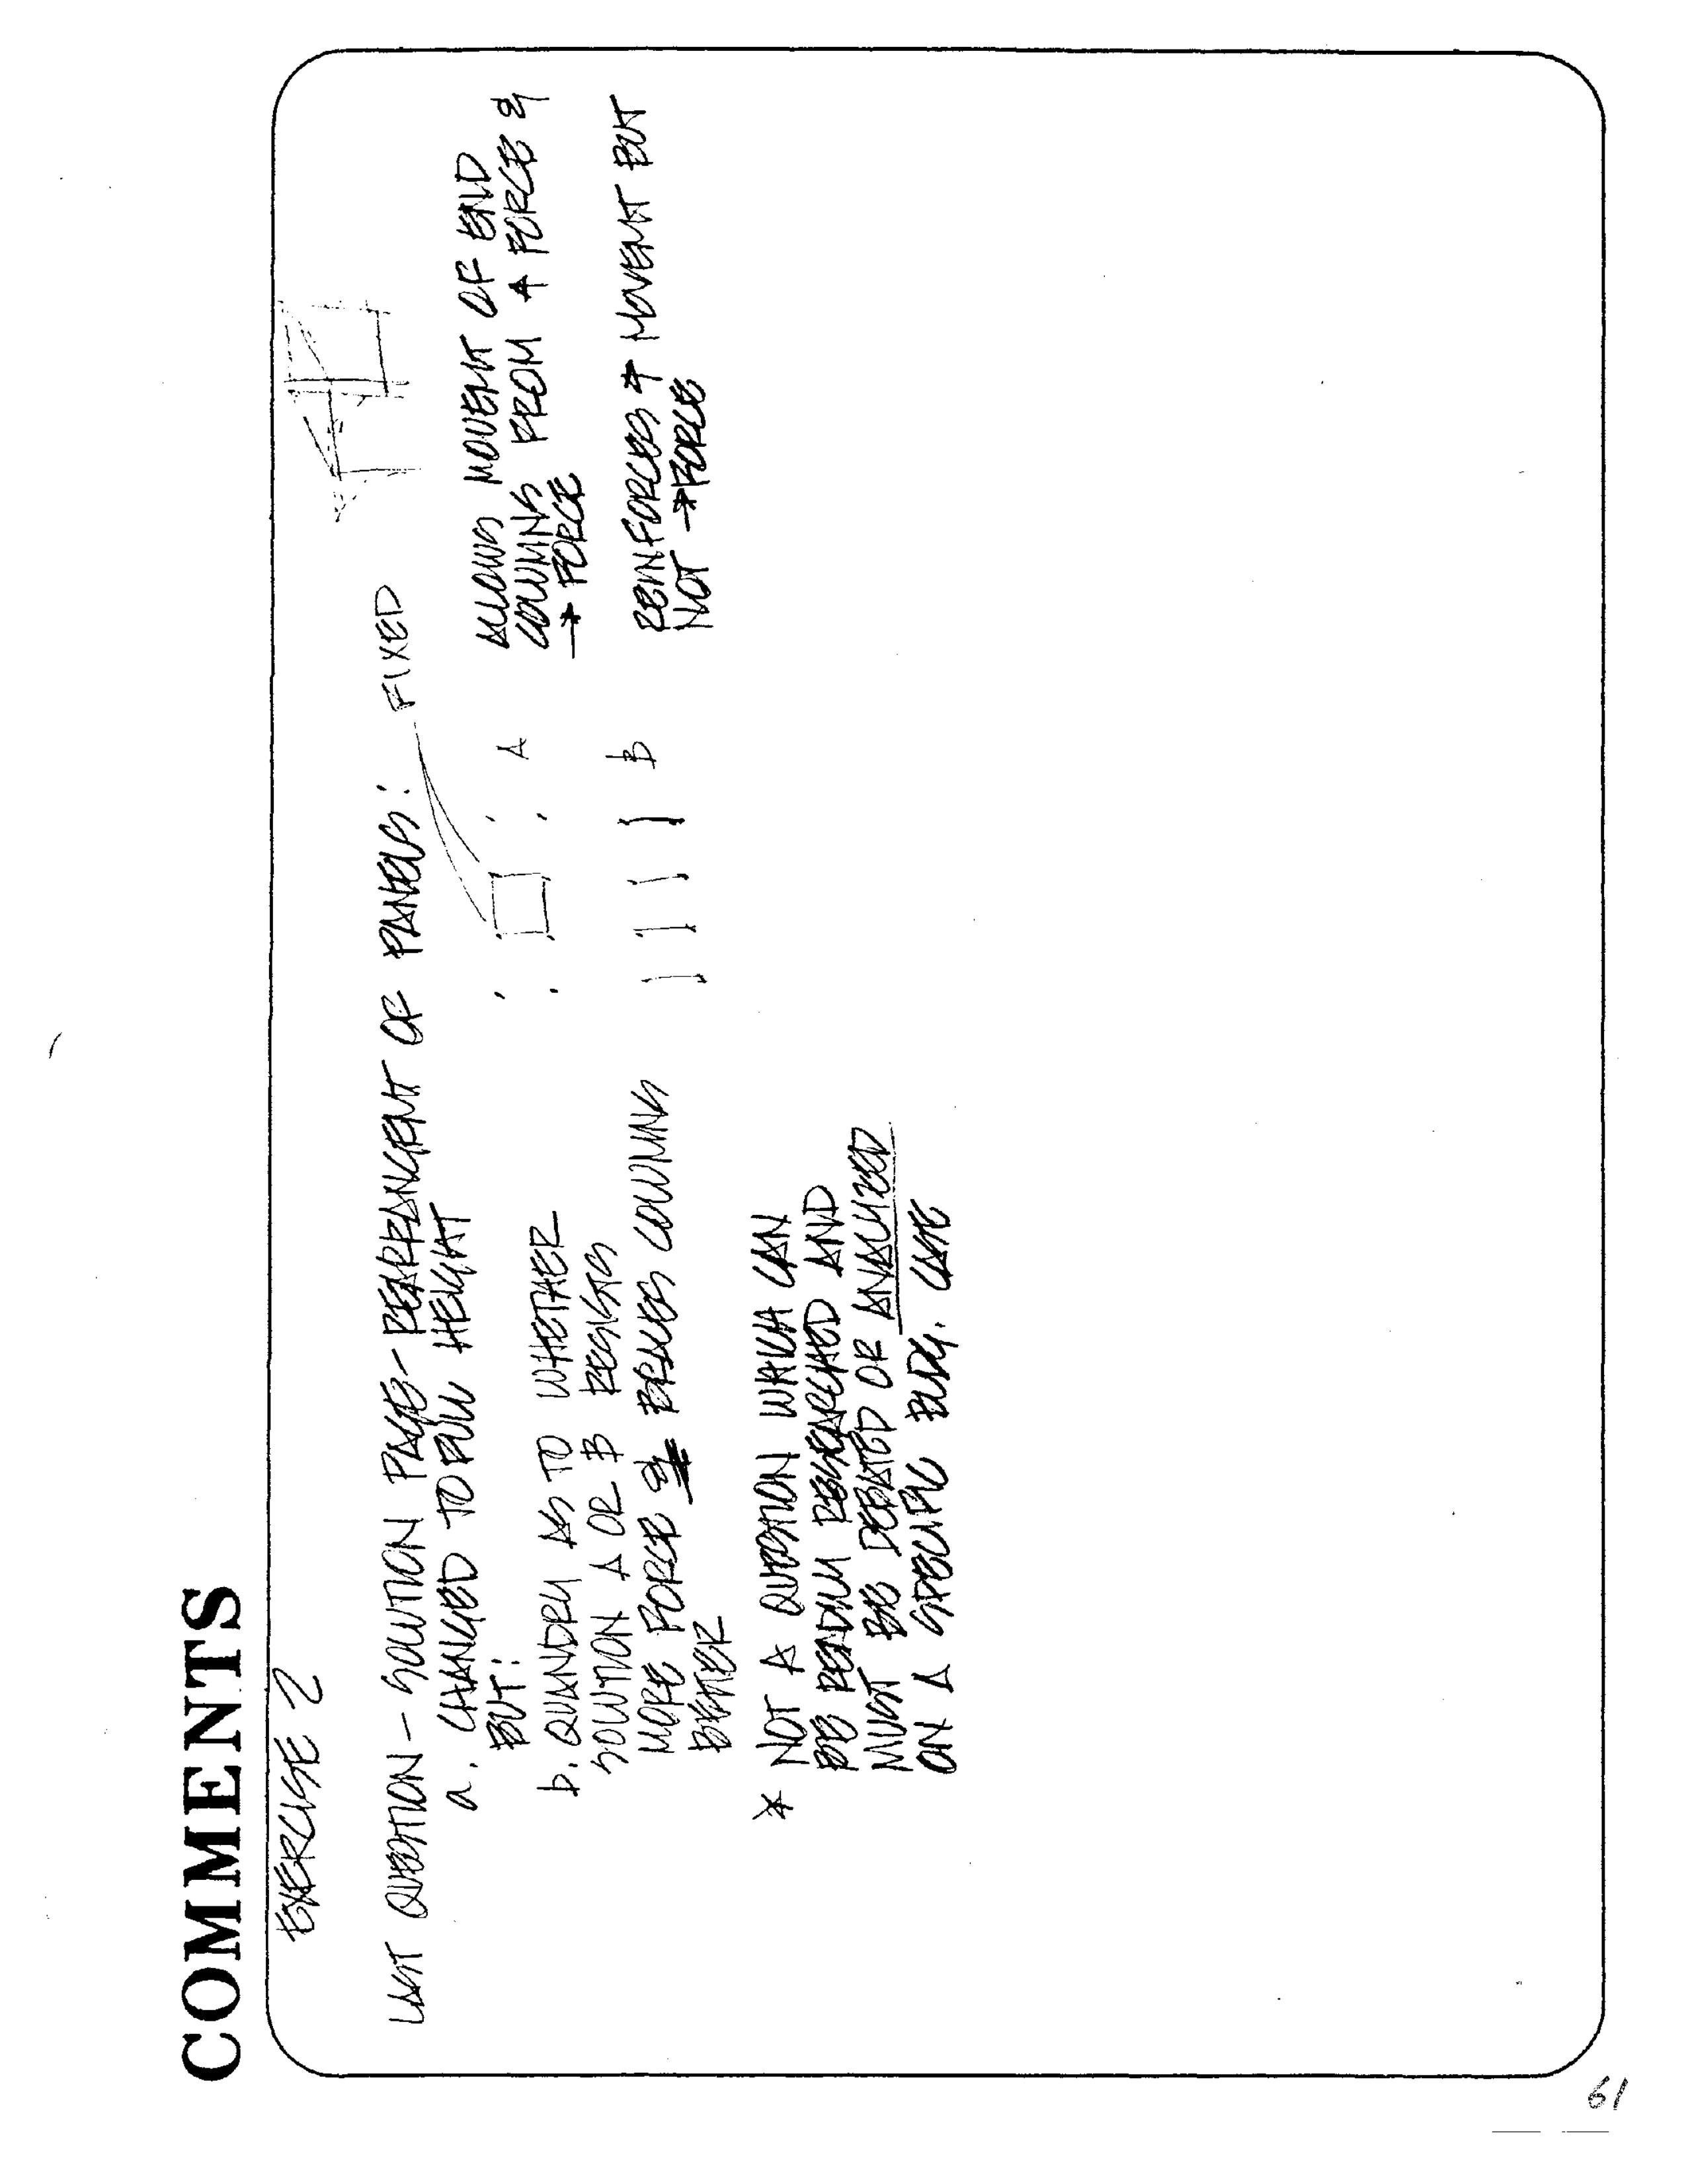 COMMENTS
EXERCISE 2
LAST QUESTION - SOLUTION PAGE - REARRANGEMT OF PANELS:
FIXED
a. CHANGED TO FULL HEIGHT
BUT:
b. QUANDRY AS TO WHETHER
SOLUTION A OR B RESISTS
MORE FORCE & BRACES COLUMNS
BETTER
A
ALLOWS MOVEMT OF END
COLUMNS FROM ↑ FORCE &
→ FORCE
B
REINFORCES ↑ MOVEMT BUT
NOT → FORCE
* NOT A QUESTION WHICH CAN
BE READILY RESEARCHED AND
MUST BE DEBATED OR ANALYZED
ON A SPECIFIC BLDG. CASE
61